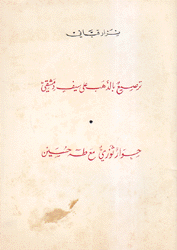 نزار قباني
ترصيع بالذهب على سيف دمشقي
حوار ثوري مع طه حسين